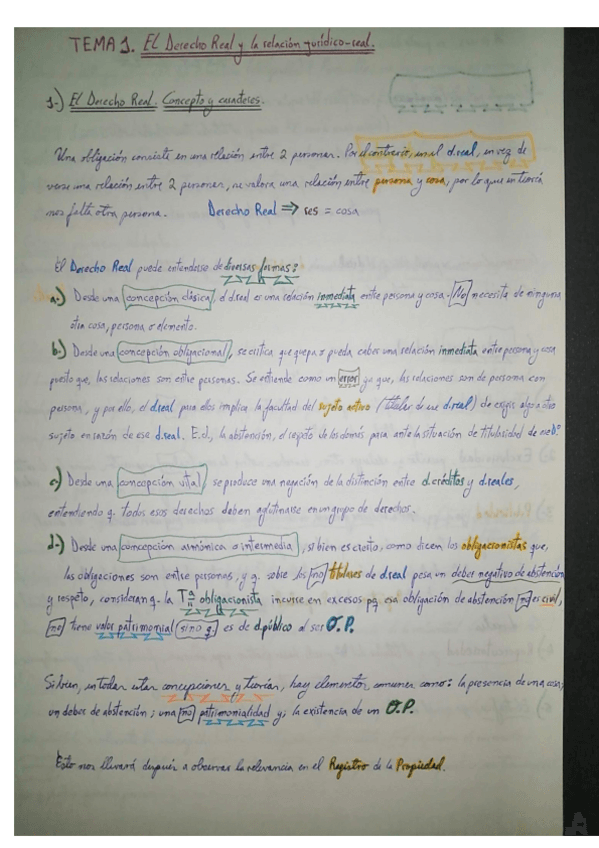 TEMA 1. El Derecho Real y la relación jurídico-real.
1.-) El Derecho Real. Concepto y caracteres.
Una obligación consiste en una relación entre 2 personas. Por el contrario, en el d.real, en vez de
verse una relación entre 2 personas, se valora una relación entre persona y cosa, por lo que en teoría
nos falta otra persona. Derecho Real ⇒ res = cosa
El Derecho Real puede entenderse de diversas formas:
a.-) Desde una concepción clásica, el d.real es una relación inmediata entre persona y cosa. No necesita de ninguna
otra cosa, persona o elemento.
b.-) Desde una concepción obligacional, se critica que quepa o pueda caber una relación inmediata entre persona y cosa
puesto que, las relaciones son entre personas. Se entiende como un error ya que, las relaciones son de persona con
persona, y por ello, el d.real para ellos implica la facultad del sujeto activo (titular de un d.real) de exigir algo a otro
sujeto en razón de ese d.real. E.d., la abstención, el respeto de los demás para ante la situación de titularidad de ese Dº
c.-) Desde una concepción vital, se produce una negación de la distinción entre d.créditos y d.reales,
entendiendo q. todos esos derechos deben aglutinarse en un grupo de derechos.
d.-) Desde una concepción armónica o intermedia, si bien es cierto, como dicen los obligacionistas que,
las obligaciones son entre personas, y q. sobre los no titulares de d.real pesa un deber negativo de abstención
y respeto, consideran q. la Tª obligacionista incurre en excesos pq esa obligación de abstención no es civil,
no tiene valor patrimonial sino q. es de d.público al ser O.P.
Si bien, en todas estas concepciones y teorías, hay elementos comunes como: la presencia de una cosa;
un deber de abstención; una no patrimonialidad y; la existencia de un O.P.
Esto nos llevará después a observar la relevancia en el Registro de la Propiedad.